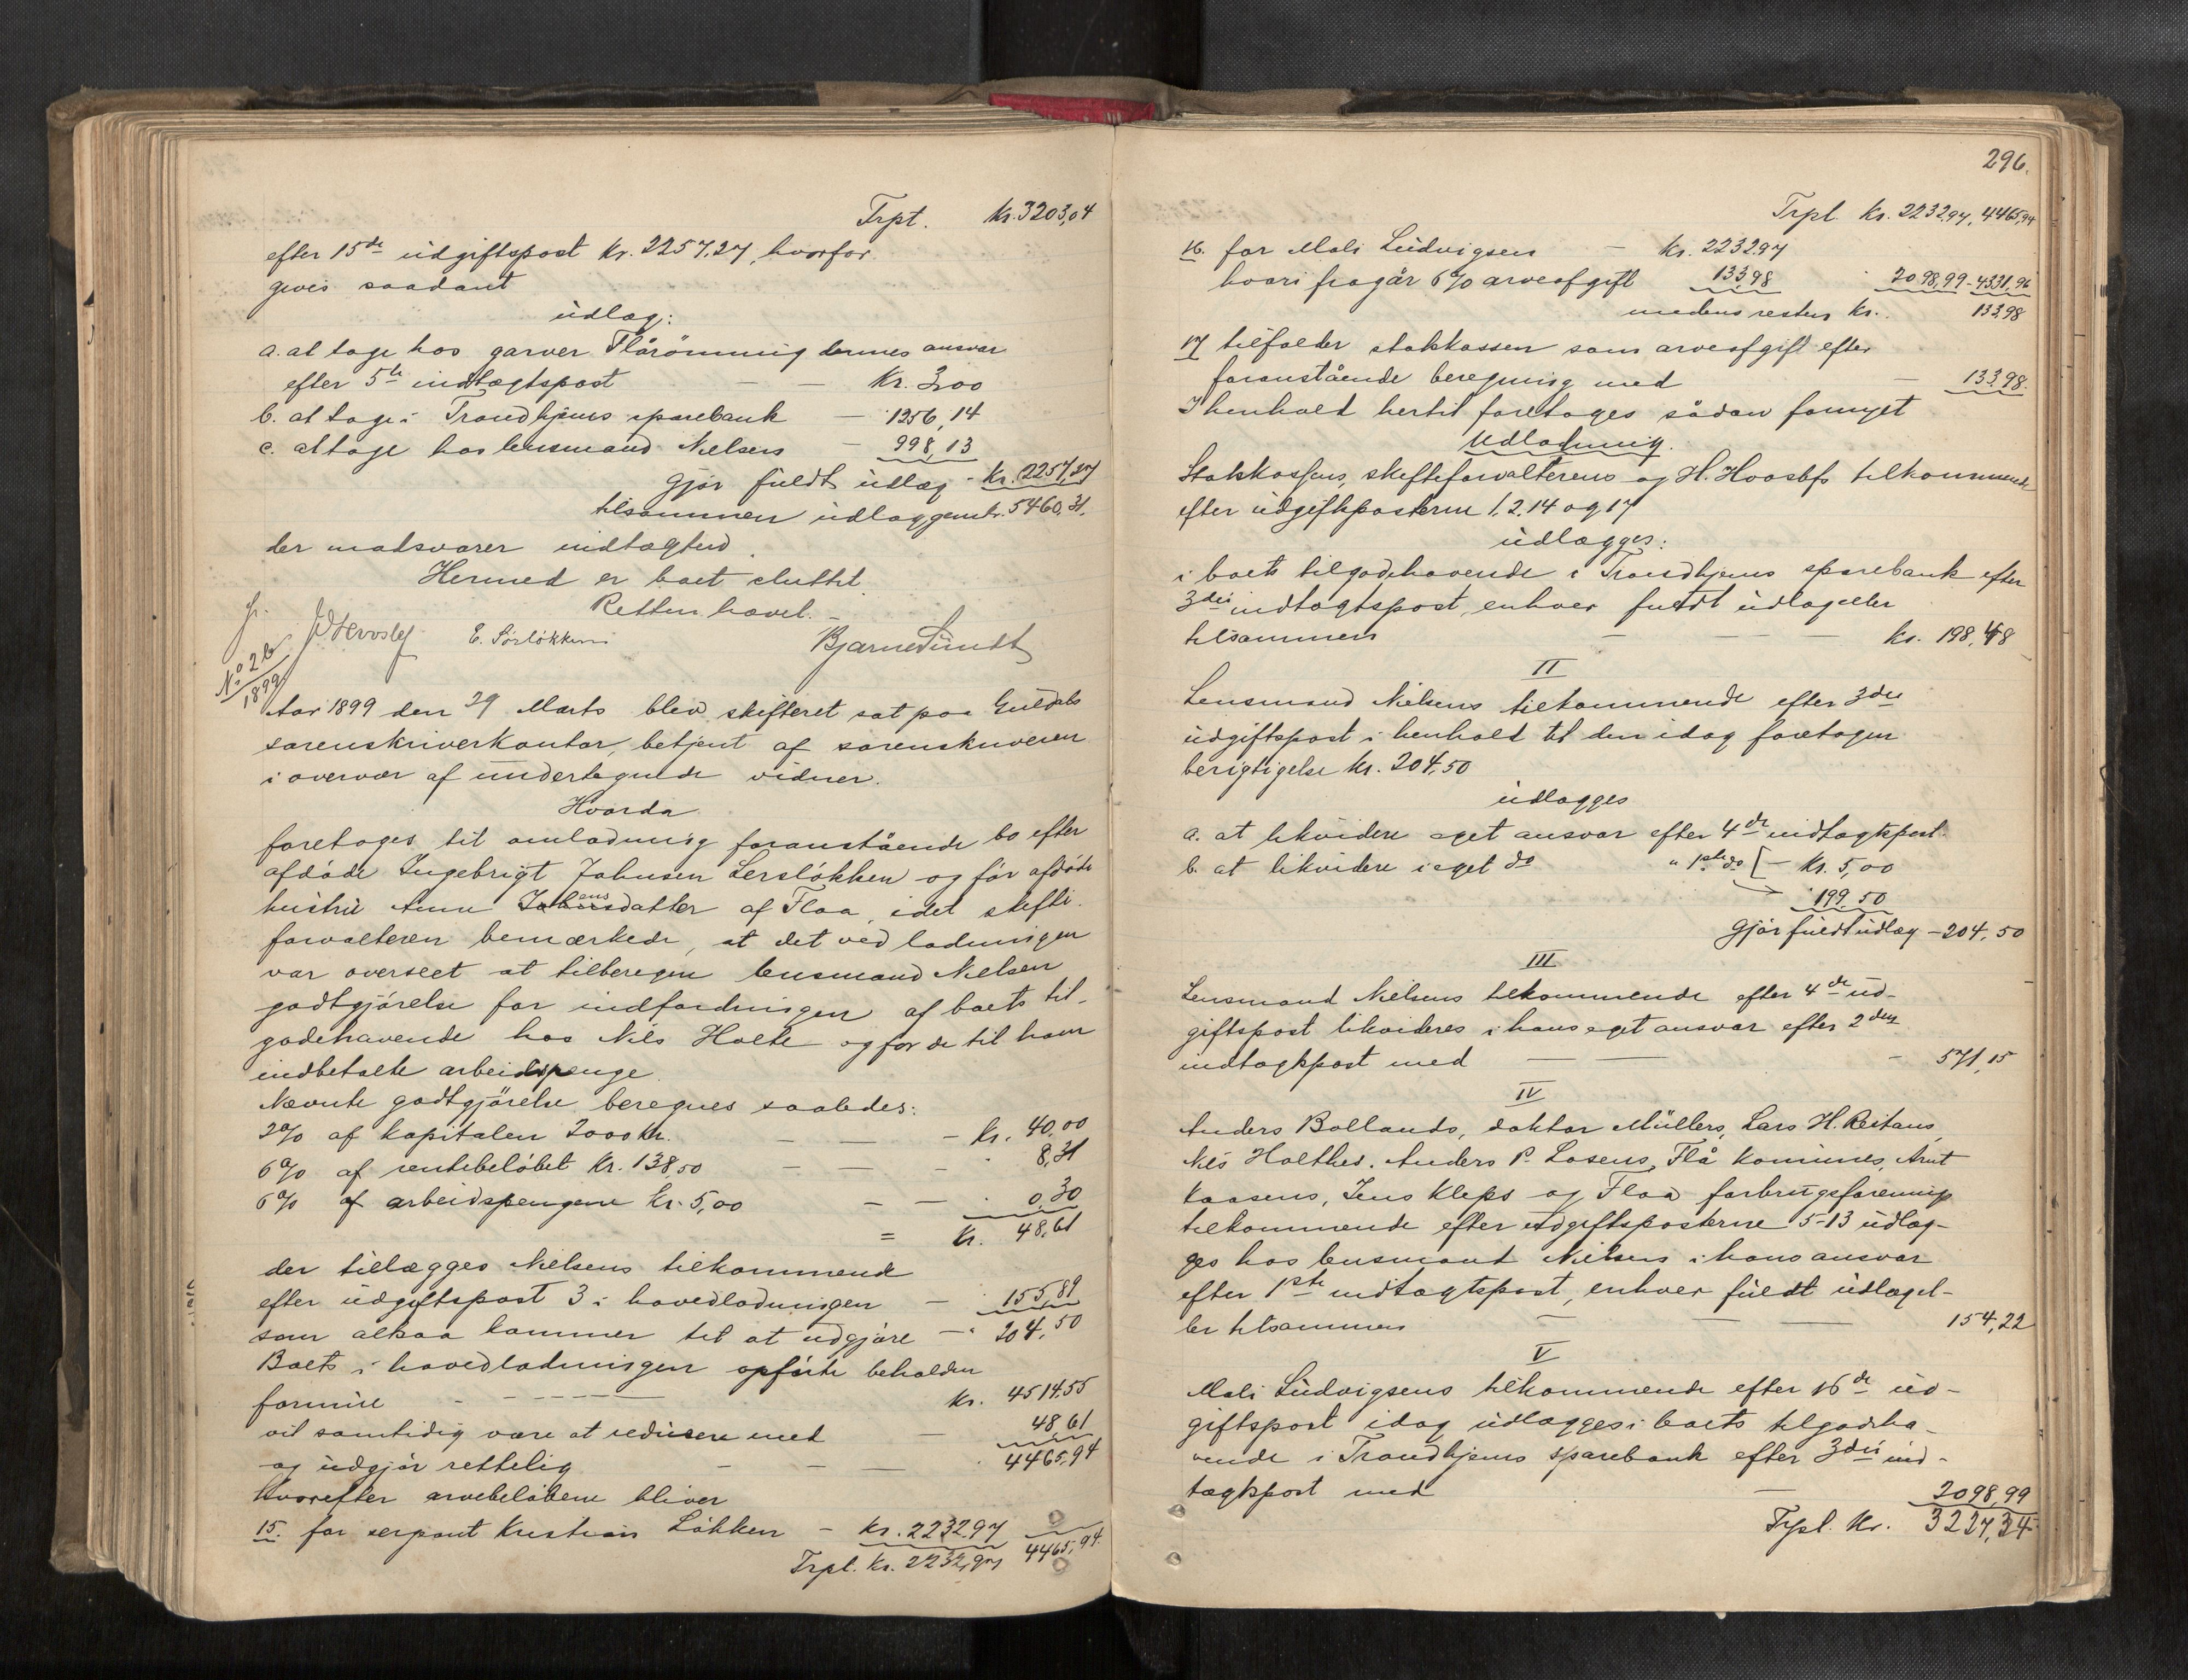 Trpt. Kr. 3203,04
efter 15de udgiftspost Kr. 2257,27, hvorfor
gives saadant
udlæg:
a. at tage hos garver Flårönning dennes ansvar
efter 5te indtægtspost — — Kr. 3,00
b. at tage i Trondhjems sparebank — 1256,14
c. at tage hos lensmand Nielsen — 998,13
Gjør fuldt udlæg - Kr. 2257,27
tilsammen udlaggem kr. 5460,31.
der modsvarer indtægten.
Hermed er boet sluttet.
Retten hævet.
E. Sørløkken Bjarne Sundt
No 2b
1899
Aar 1899 den 29 Marts blev skifteret sat paa Guldals
sorenskriverkontor, betjent af sorenskriveren
i overvær af undertegnede vidner.
Hvorda
foretoges til omlodning foranstående bo efter
afdøde Ingebrigt Johnsen Lersløkken og før afdøde
hustru Anne Johnsdatter ens af Flaa, idet skifte-
forvalteren bemærkede, at det ved lodningen
var overseet at tilberegne lensmand Nielsen
godtgjørelse for indfordringen af boets til-
godehavende hos Nils Holte og for de til ham
indbetalte arbeidspenge.
Nævnte godtgjörelse beregnes saaledes:
2% af kapitalen 2000 kr. — — - Kr. 40,00
6% af rentebeløbet Kr. 138,50 — — - " 8,31
6% af arbeidspengene Kr. 5,00 — — " 0,30
= Kr. 48,61
der tillægges Nielsens tilkommende
efter udgiftspost 3 i hovedlodningen — " 155,89
som altsaa kommer til at udgjøre — " 204,50
Boets i hovedlodningen opførte beholdne
formue - — Kr. 4514,55
vil samtidig være at reducere med — 48,61
og udgjør rettelig — — " 4465,94
hvorefter arvebeløbene bliver
15. for sersjant Kristian Løkken — Kr. 2232,97
4465,94.
Trpt. Kr. 2232,97
296.
Trpt. Kr. 2232,97, 4465,94
16. for Mali Ludvigsen — Kr. 2232,97
hvori fragår 6% arveafgift 133,98 " 2098,99 - 4331,96
medens resten Kr. 133,98
17 tilfalder statskassen som arveafgift efter
foranstående beregning med — 133,98.
I henhold hertil foretages sådan fornyet
Udlodning.
Statskassens, skifteforvalterens og H. Hoosløfs tilkommende
efter udgiftsposterne 1, 2, 14 og 17
udlægges:
i boets tilgodehavende i Trondhjems sparebank efter
3die indtægtspost, enhver fuldt udlagt eller
tilsammen — — — Kr. 198,48
II
Lensmand Nielsens tilkommende efter 3die
udgiftspost i henhold til den idag foretagne
berigtigelse Kr. 204,50
udlægges
a. at likvidere eget ansvar efter 4de indtægtspost
b. at likvidere i eget do " 1ste do [ — Kr. 5,00
199,50
Gjør fuldt udlæg - 204,50
III
Lensmand Nielsens tilkommende efter 4de ud-
giftspost likvideres i hans eget ansvar efter 2den
indtægtspost med — — - 571,15
IV
Anders Bollands, doktor Müllers, Lars H. Reitans,
Nils Holthes, Anders P. Losens, Flå kommunes, Arnt
Kaasens, Jens Kleps og Flaa forbrugsforenings
tilkommende efter udgiftsposterne 5-13 udlæg-
ges hos lensmand Nielsen i hans ansvar
efter 1ste indtægtspost, enhver fuldt udlagt el-
ler tilsammen — — — 154,22
V
Mali Ludvigsens tilkommende efter 16de ud-
giftspost idag udlægges i boets tilgodeha-
vende i Trondhjems sparebank efter 3die ind-
tægtspost med — 2098,99
Trpt. Kr. 3227,34